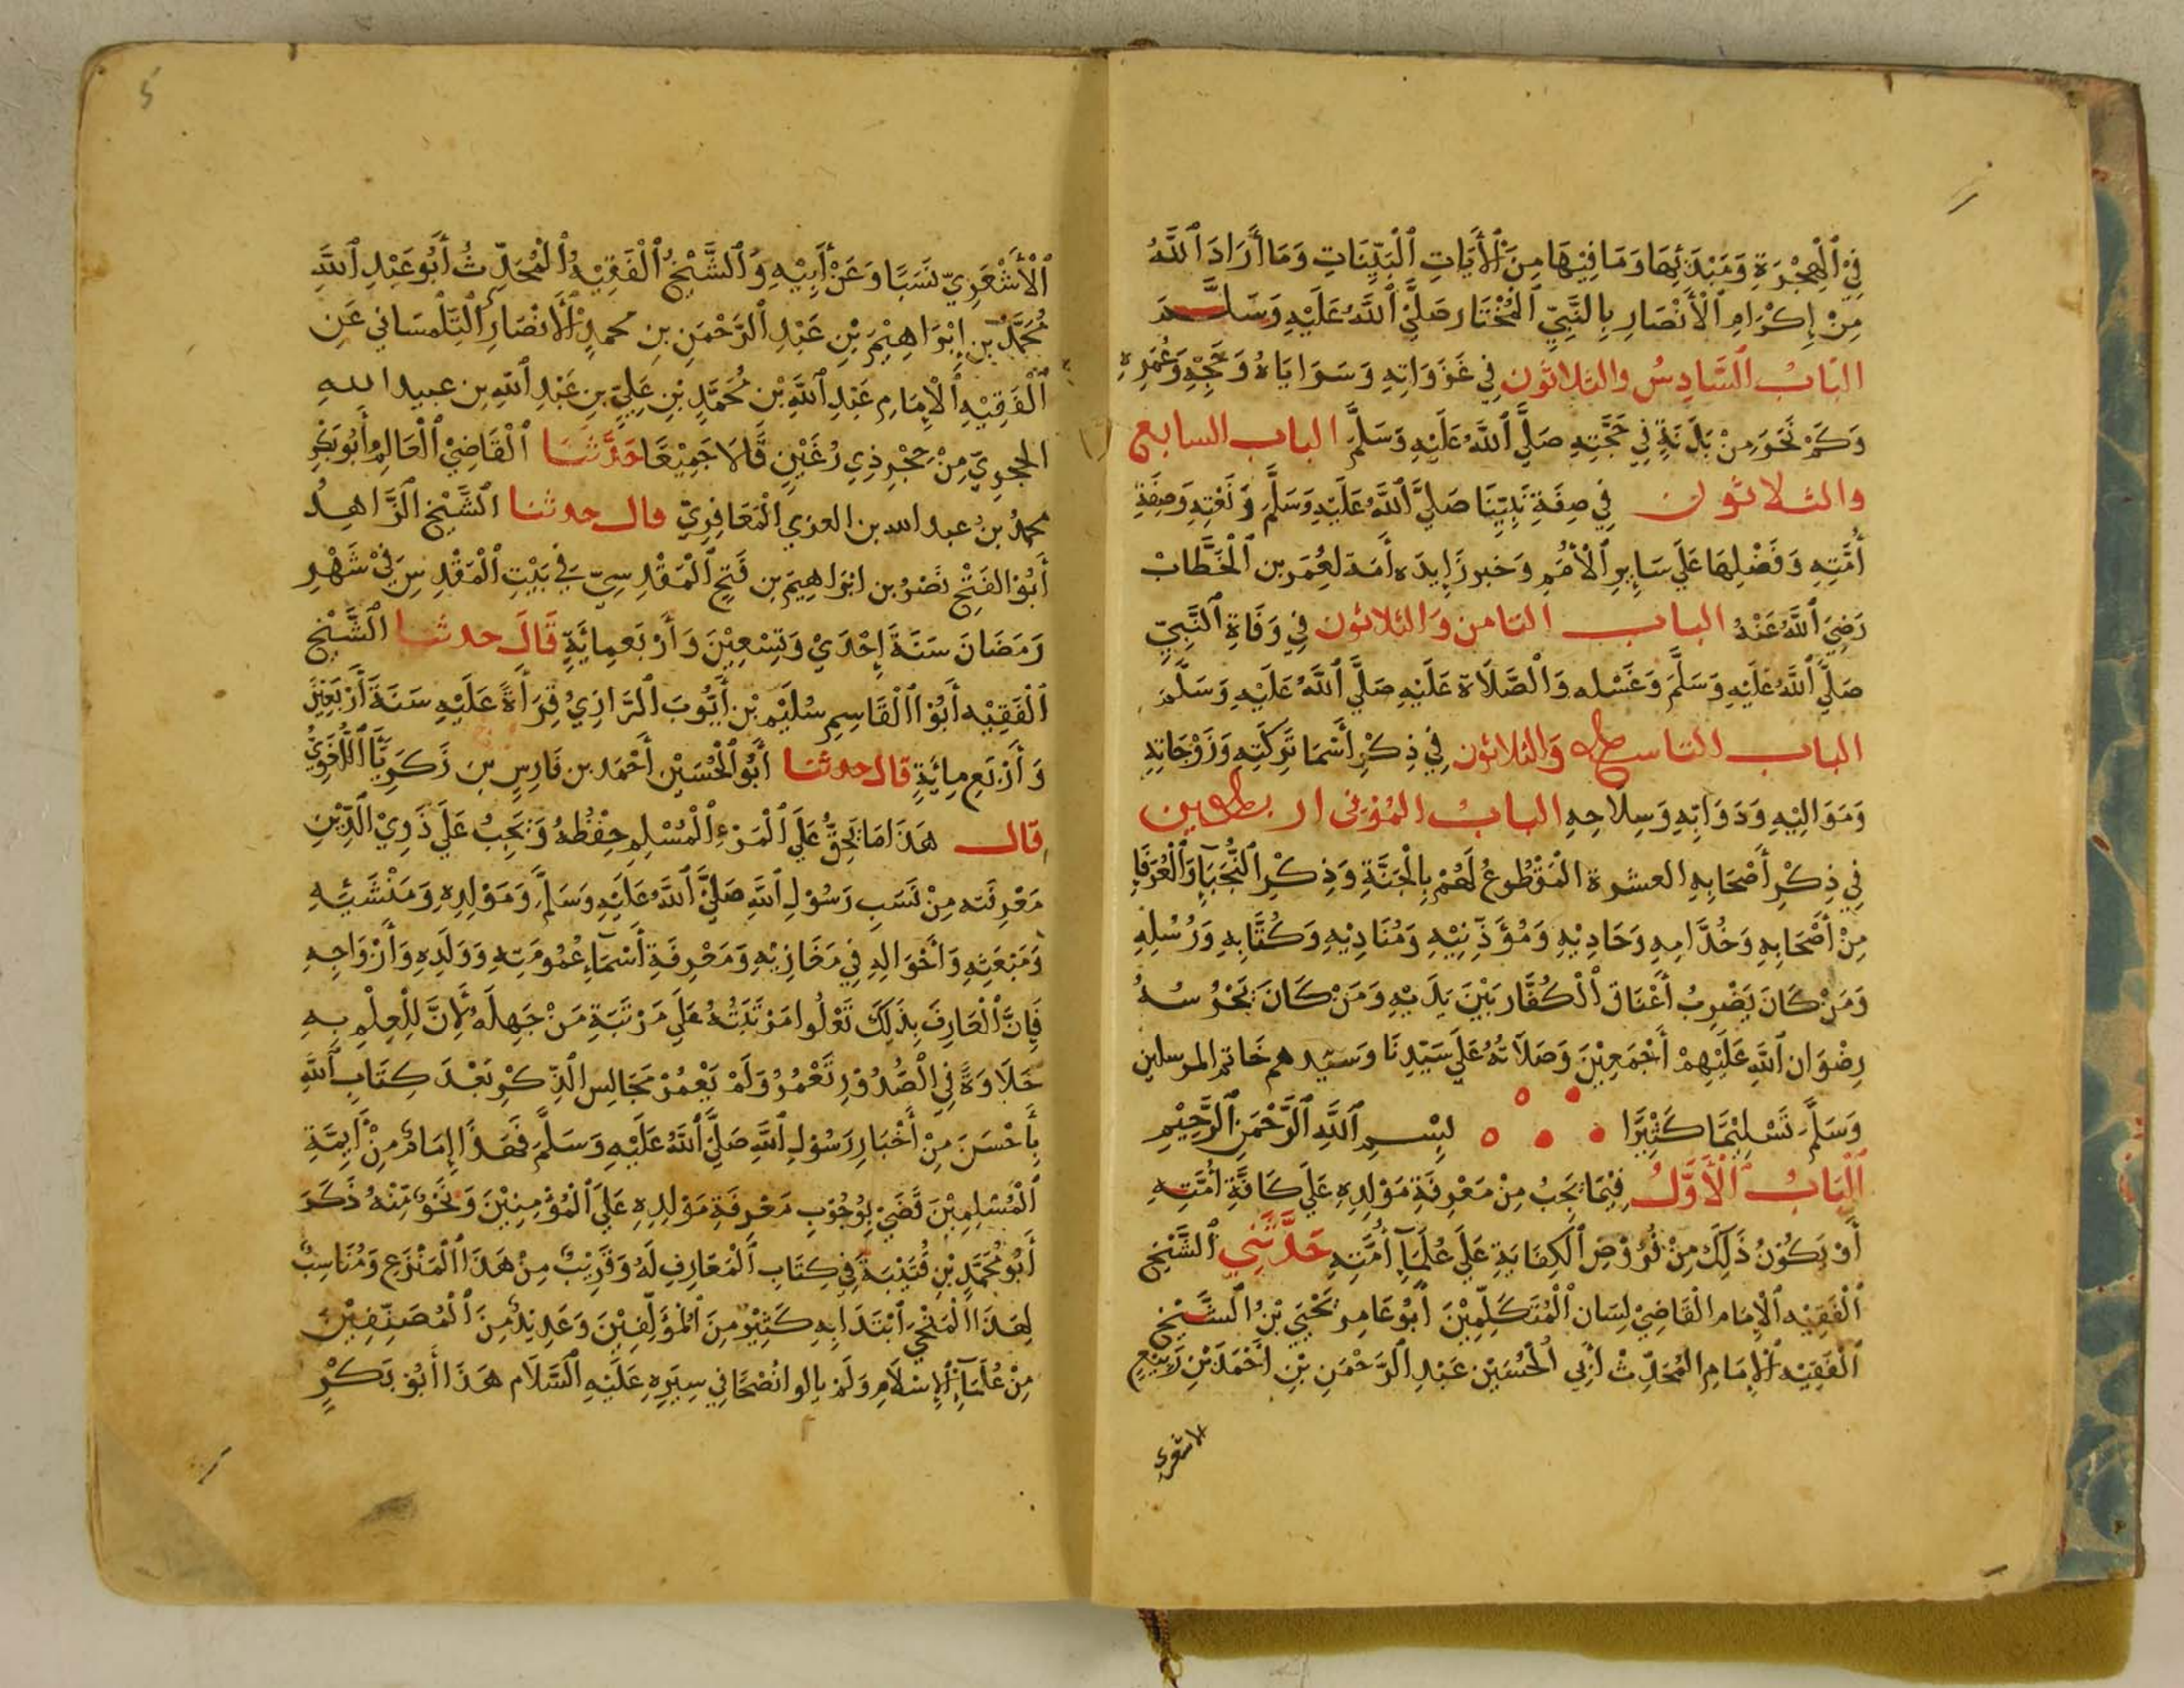 فِي ٱلْهِجْرَةِ وَمَبْدَئِهَا وَمَا فِيْهَا مِنَ ٱلْأَيَاتِ ٱلْبَيِّنَاتِ وَمَا أَرَادَ ٱللَّهُ
مِنْ إِكْرَامِ ٱلْأَنْصَارِ بِالنَّبِيِّ ٱلْمُخْتَارِ صَلَّيَ ٱللَّهُ عَلَيْهِ وَسَلَّمَ
البَابُ ٱلسَّادِسُ والثلاثون فِي غَزَوَاتِهِ وَسَرَايَاهُ وَحَجِّهِ وَعُمَرِهِ
وَكَمْ نَحَرَ مِنْ بَدَنَةٍ فِي حَجَّتِهِ صَلَّيَ ٱللَّهُ عَلَيْهِ وَسَلَّمَ الباب السابع
والثلاثون فِي صِفَةِ نَبِيِّنَا صَلَّيَ ٱللَّهُ عَلَيْهِ وَسَلَّمَ وَنَعْتِهِ وَصِفَةِ
أُمَّتِهِ وَفَضْلِهَا عَلَي سَايِرِ ٱلْأُمَمِ وَخبر زَايِدَه أَمَة لعُمَر بن ٱلْخَطَّابْ
رَضِيَ ٱللَّهُ عَنْهُ الباب الثامن وَالثلاثون فِي وَفَاةِ ٱلنَّبِيِّ
صَلَّيَ ٱللَّهُ عَلَيْهِ وَسَلَّمَ وَغَسْله وَالْصَّلَاة عَلَيْهِ صَلَّيَ ٱللَّهُ عَلَيْهِ وَسَلَّمَ
الباب التاسع وَالثلاثون فِي ذِكْرِ أَسْمَا تَرِكَتِهِ وَزَوْجَاتِهِ
وَمَوَالِيْهِ وَدَوَابِّهِ وَسِلَاحِهِ البابُ المُوَفى اربعين
فِي ذِكْرِ أَصْحَابِهِ العشرة المَقْطُوعُ لَهُمْ بِالْجَنَّةِ وَذِكْرِ ٱلنُّجَبَآءِ وَٱلْعُرَفَاءِ
مِنْ أَصْحَابِهِ وَخُدَّامِهِ وَحَادِيْهِ وَمُؤَذِّنِيْهِ وَمُنَادِيْهِ وَكُتَّابِهِ وَرُسُلِهِ
وَمَنْ كَانَ يَضْرِبُ أَعْنَاقَ ٱلْكُفَّار بَيْنَ يَدَيْهِ وَمَنْ كَانَ يَحْرُسُهُ
رِضْوَان ٱللَّهِ عَلَيْهِمْ أَجْمَعِيْنَ وَصَلَاتُهُ عَلَي سَيِّدِنَا وَسَيِّدهم خَاتم المرسلين
وَسَلَّمَ تَسْلِيْمًا كَثِيْرًا بِسْمِ ٱللَّهِ ٱلرَّحْمَنِ ٱلرَّحِيْمِ
ٱلْبَابُ ٱلْأَوَّلُ فِيْمَا يَجِبُ مِنْ مَعْرِفَةِ مَوْلِدِهِ عَلَي كَافَّةِ أُمَّتِهِ
أَوْ يَكُوْنُ ذَلِكَ مِنْ فُرُوْضِ ٱلْكِفَايَةِ عَلَي عُلَمَآءِ أُمَّتِهِ حَدَّثَنِي ٱلشَّيْخ
ٱلْفَقِيْه ٱلْإِمَام القَاضِيْ لِسَان ٱلْمُتَكَلِّمِيْنَ أَبُوْ عَامِر يَحْيَيَ بْنُ ٱلشَّيْخ
ٱلْفَقِيْه ٱلْإِمَامِ المُحَدِّث أَبِي ٱلْحُسَيْنِ عَبْدِ ٱلرَّحْمَنِ بْنِ أَحْمَدَ بْنِ رَبِيْعٍ
الاشعري
ٱلْأَشْعَرِيّ نَسَبًا وَعَنْ أَبِيْهِ وَٱلشَّيْخُ ٱلْفَقِيْهُ ٱلْمُحَدِّثُ أَبُو عَبْدِ ٱللَّهِ
مُحَمَّدُ بن إِبْرَاهِيْمَ بْنِ عَبْدِ ٱلرَّحْمَنِ بنِ محمدٍ ٱلْأَنْصَارِي ٱلتِّلْمسَاني عَنِ
ٱلْفَقِيْهِ ٱلْإِمَامِ عَبْدِ ٱللَّهِ بْن مُحَمَّدِ بْنِ عَلِيِّ بنِ عَبْدِ ٱللَّهِ بن عبيد الله
الحجرِيّ مِنْ حَجْرِ ذِي رُعَيْنٍ قَالَا جَمِيْعًا حَدَّثَنَا ٱلْقَاضِيْ ٱلْعَالِمُ أَبُو بَكْرٍ
محمدُ بنُ عبد الله بن العربي الْمَعَافِرِيّ قال حدثنا ٱلشَّيْخ ٱلزَّاهِدُ
أَبُوْ الفَتْحِ نَصْرُ بن ابْرَاهِيْمَ بن فَتْحٍ ٱلْمَقْدِسِيّ فِي بَيْتِ ٱلْمَقْدِسِ فِيْ شَهْرِ
رَمَضَانَ سَنَةَ إِحْدَيْ وَتِسْعِيْنَ وَأَرْبَعمِائَةٍ قَالَ حدثنا ٱلشَّيْخ
ٱلْفَقِيْه أَبُوْ ٱلْقَاسِمِ سُلَيْم بْن أَيُّوبَ ٱلرَّازِيْ قِرَأَةً عَلَيْهِ سَنَةَ أَرْبَعِيْنَ
وَأَرْبَعِ مِائَةٍ قال حدثنا أَبُو ٱلْحُسَيْن أَحْمَد بن فَارِسِ بنِ زَكَرِيَّا ٱللُّغَوِيُّ
قال هَذَا مَا يَحِقُّ عَلَي ٱلْمَرْءِ ٱلْمُسْلِمِ حِفْظُهُ وَيَجِبُ عَلَي ذَوِيْ ٱلدِّيْنِ
مَعْرِفَته مِنْ نَسَبِ رَسُوْلِ ٱللَّهِ صَلَّيَ ٱللَّهُ عَلَيْهِ وَسَلَّمَ وَمَوْلِدِهِ وَمَنْشَئِهِ
وَمَبْعَثِهِ وَأَحْوَالِهِ فِي مَغَازِيْهِ وَمَعْرِفَةِ أَسْمَآءِ عُمُوْمَتِهِ وَوَلَدِهِ وَأَزْوَاجِهِ
فَإِنَّ ٱلْعَارِفَ بِذَلِكَ تَعْلُوا مَرْتَبَتُهُ عَلَي مَرْتَبَةِ مَنْ جَهِلَهُ لِأَنَّ لِلْعِلْمِ بِهِ
حَلَاوَةً فِي ٱلْصُّدُوْرِ تَعْمُرُ وَلَمْ يَعْمُرْ مَجَالِس ٱلذِّكْرِ بَعْدَ كِتَابِ ٱللَّهِ
بِأَحْسَنَ مِنْ أَخْبَارِ رَسُوْلِ ٱللَّهِ صَلَّيَ ٱللَّهُ عَلَيْهِ وَسَلَّمَ فَهَذَا إِمَامٌ مِنْ أَيِمَّةِ
ٱلْمُسْلِمِيْنَ قَضَيَ بِوُجُوْبِ مَعْرِفَةِ مَوْلِدِهِ عَلَي ٱلْمُؤْمِنِيْنَ وَنَحْوٌ مِّنْهُ ذَكَرَ
أَبُوْ مُحَمَّدِ بْنِ قُتَيْبَةَ فِي كِتَابِ ٱلْمَعَارِفِ لَهُ وَقَرِيْبٌ مِنْ هَذَا ٱلْمَنْزَعِ وَمُنَاسِبٌ
لِهَذَا ٱلْمَنْحَي ٱبْتَدَا بِهِ كَثِيْرٌ مِنَ ٱلْمُؤَلِّفِيْنَ وَعَدِيْدٌ مِنَ ٱلْمُصَنِّفِيْنَ
مِنْ عُلَمَآءِ ٱلْإِسْلَامِ وَلَمْ يالوا نُصْحًا فِي سِيَرِهِ عَلَيْهِ ٱلسَّلَام هَذَا أَبُوْ بَكْرٍ